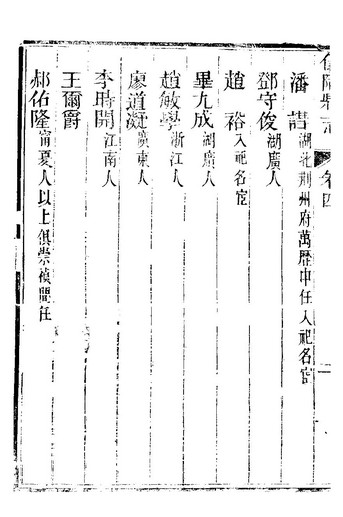 卷四
潘 湖北荆州府萬歷中任入祀名宦
鄧守俊湖廣人
趙裕入祀名宦
畢九成湖廣人
趙敏學浙江人
廖道凝廣東人
李時開江南人
王爾爵
郝佑隆甯夏人以上俱崇禎間任